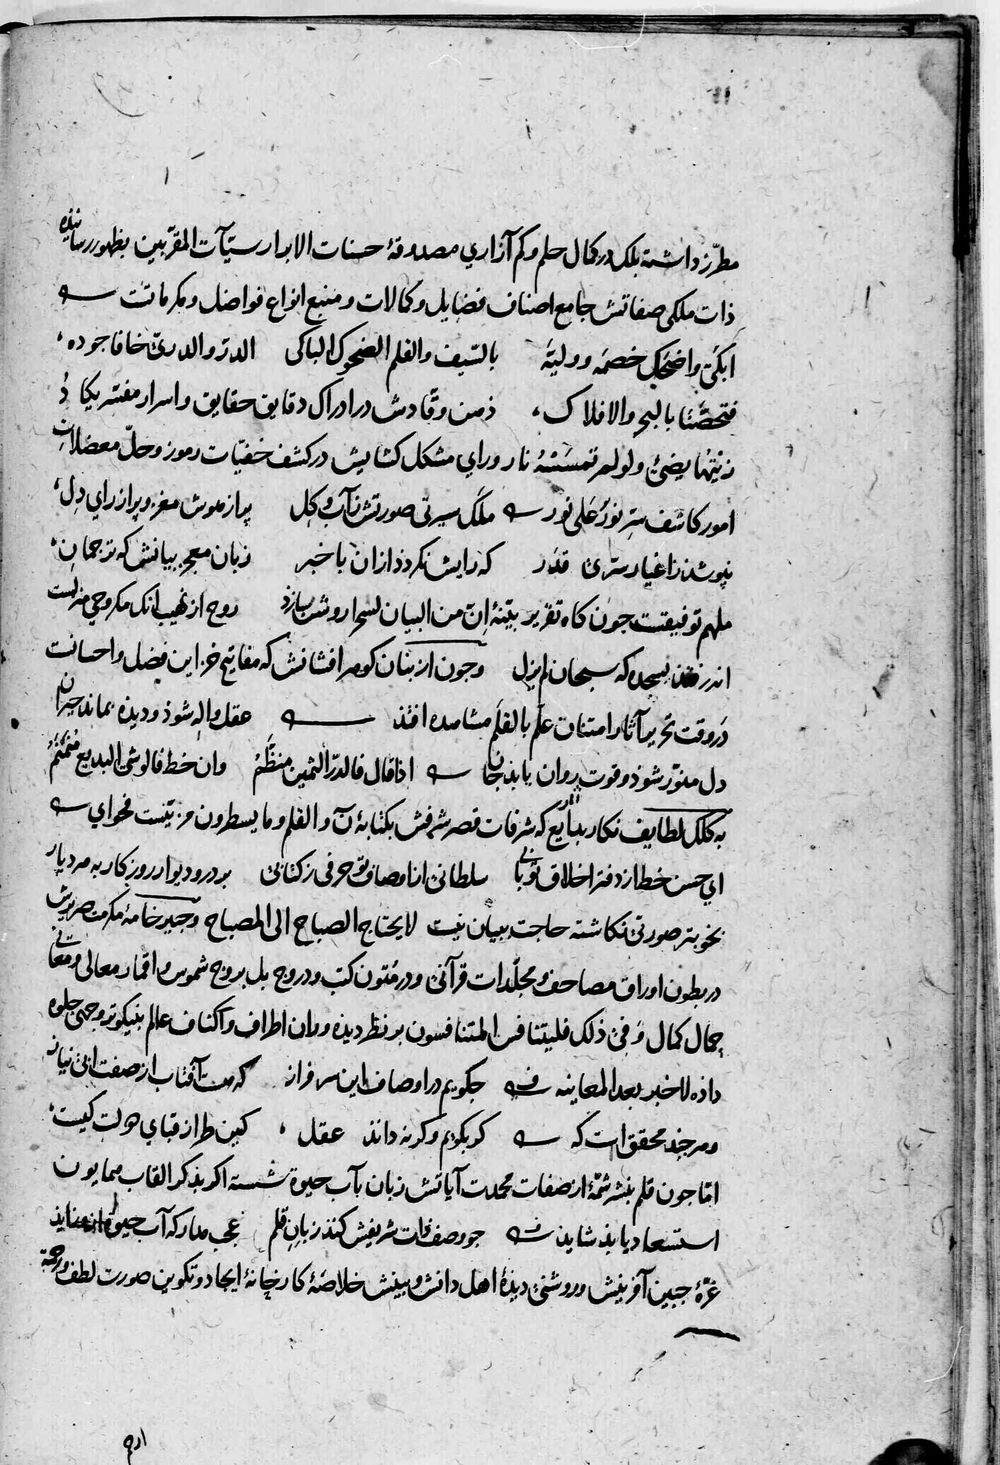 مطرز داشته بلک در کمال حلم و کم آزاری مصدوقهٔ حسنات الابرار سیّآت المقرّبین بظهور رسانیده
ذات ملکی صفاتش جامع اصناف فضایل و کمالات و منبع انواع فواضل و مکرماتت
ابکی واضحک خصمه وولیّه بالسّیف والقلم الضحوک الباکی الدرّ والدریّ خافا جوده
فتحصّنا بالبحر والافلاک ذهن وقّادش در ادراک دقایق حقایق و اسرار مفسّر یکاد
زیتها یضیٔ ولو لم تمسسه نار و رای مشکل کشایش در کشف خفیّات رموز و حلّ معضلات
امور کاشف سرّ نورٌ علی نور ملک سیرتی صورتش زآب و کل پر از هوش مغز و پر از رای دل
نپوشد ز اغیار سرّی قدر که رایش نکردذ ازان باخبر زبان معجز بیانش که ترجمان
ملهم توفیقست جون کاه تقریر بیّنهٔ انّ من البیان لسحرا روشن سازذ روح از نهیب آنک مکر وحی منزلست
اندر فتد بسجده که سبحان لم یزل وجون از بنان کوهر افشانش که مفاتیح خزاین فضل و احسانت
در وقت تحریر آثار امتنان علّم بالقلم مشاهده افتذ عقل واله شوذ و دیذه بماند حیران
دل منوّر شوذ و قوت روان یابذ جان اذا قال فالدرّ الثمین منظّم وان خط فالوشی البدیع منمنم
به کلک لطایف نکار بدایع آثار که شرفات قصر شرفش بکتابهٔ ن والقلم وما یسطرون مزیّنست فحوای
ای حسن خط از دفتر اخلاق تو بابی سلطانی از اوصاف تو حرفی ز کتابی بر در و دیوار روزکار به هر دیار
بخوبتر صورتی نکاشته حاجت ببیان نیست لا یحتاج الصباح الی المصباح وصریر خامهٔ مکرمت
در بطون اوراق مصاحف و مجلّدات قرآنی و در متون کتب و دروج بل بروج شموس و اقمار معالی و معانی
جمال کمال وفی ذلک فلیتنافس المتنافسون بر نظر دیذه وران اطراف و اکناف عالم بنیکوتر وجهی جلوه
داذه لا خبر بعد المعاینه جکویم در اوصاف این سرفراز که هست آفتاب از صفت بی نیاز
و هر جند محقق است که کر بکویم و کر نه داند عقل کین طراز قبای دولت کیست
امّا جون قلم بنشر شمّهٔ از صفات محمدت آیاتش زبان بآب حیوة شسته اکر بذکر القاب همایون
استسعاد یابذ شاید جو وصف ذات شریفش کند زبان قلم عجب مدار که آب حیوة
غرّهٔ جبین آفرینش و روشنی دیذهٔ اهل دانش و بینش خلاصهٔ کارخانهٔ ایجاد و تکوین صورت لطف و رحمة